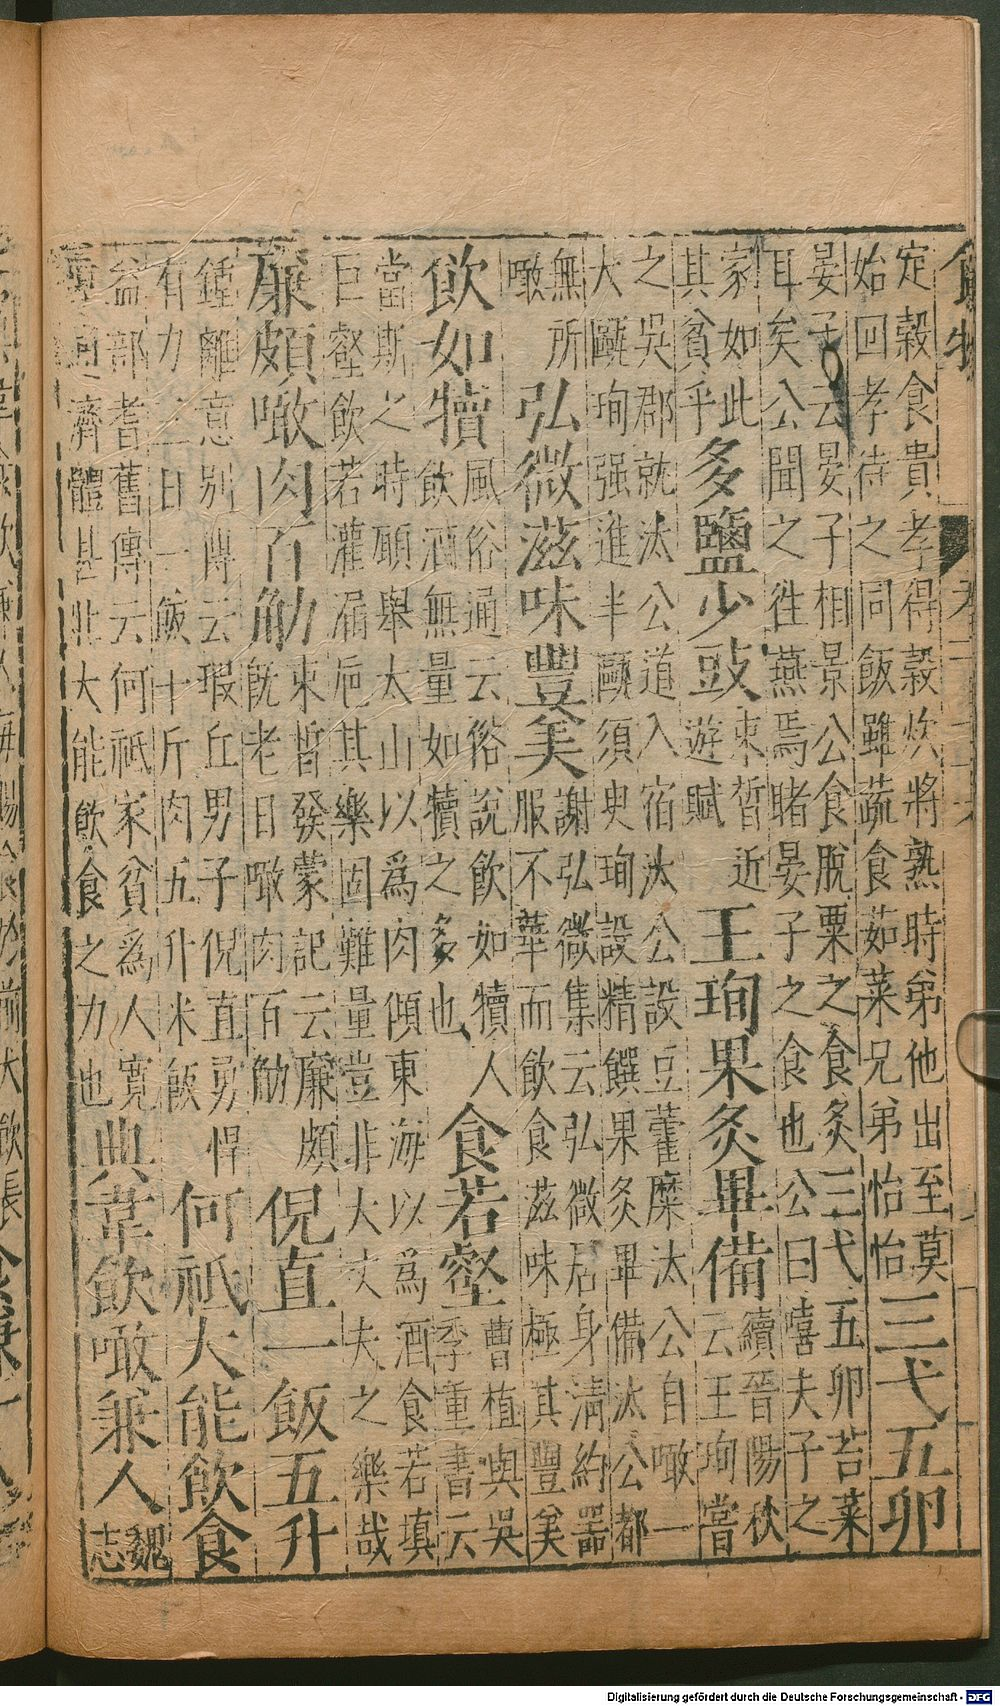 定穀食貴孝得穀炊將熟時弟他出至莫
始回孝待之同飯雖蔬食茹菜兄弟怡怡
三弋五卯
晏子云晏子相景公食脫粟之食炙三弋五卯苔菜
耳矣公聞之徃燕焉睹晏子之食也公曰嘻夫子之
家如此
其貧乎
多鹽少豉
束晳近
遊賦
王珣果炙畢備
續晉陽秋
云王珣嘗
之吳郡就汰公道入宿汰公設豆藿糜汰公自噉一
大甌珣强進半甌須臾珣設精饌果炙畢備汰公都
無所
噉
弘微滋味豐美
謝弘微集云弘微居身淸約器
服不華而飲食滋味極其豐美
飲如犢
風俗通云俗說飲如犢人
飲酒無量如犢之多也
食若壑
曹植與吳
季重書云
當斯之時願舉太山以爲肉傾東海以爲酒食若填
巨壑飲若灌漏巵其樂固難量豈非大丈夫之樂哉
廉頗噉肉百觔
束晳發蒙記云廉頗
旣老日噉肉百觔
倪直一飯五升
鍾離意別傳云瑕丘男子倪直勇悍
有力三日一飯十斤肉五升米飯
何祗大能飲食
益部耆舊傳云何祗家貧爲人寬
通濟體甚壯大能飲食之力也
典韋飲噉兼人
魏
志
Digitalisierung gefördert durch die Deutsche Forschungsgemeinschaft - DFG